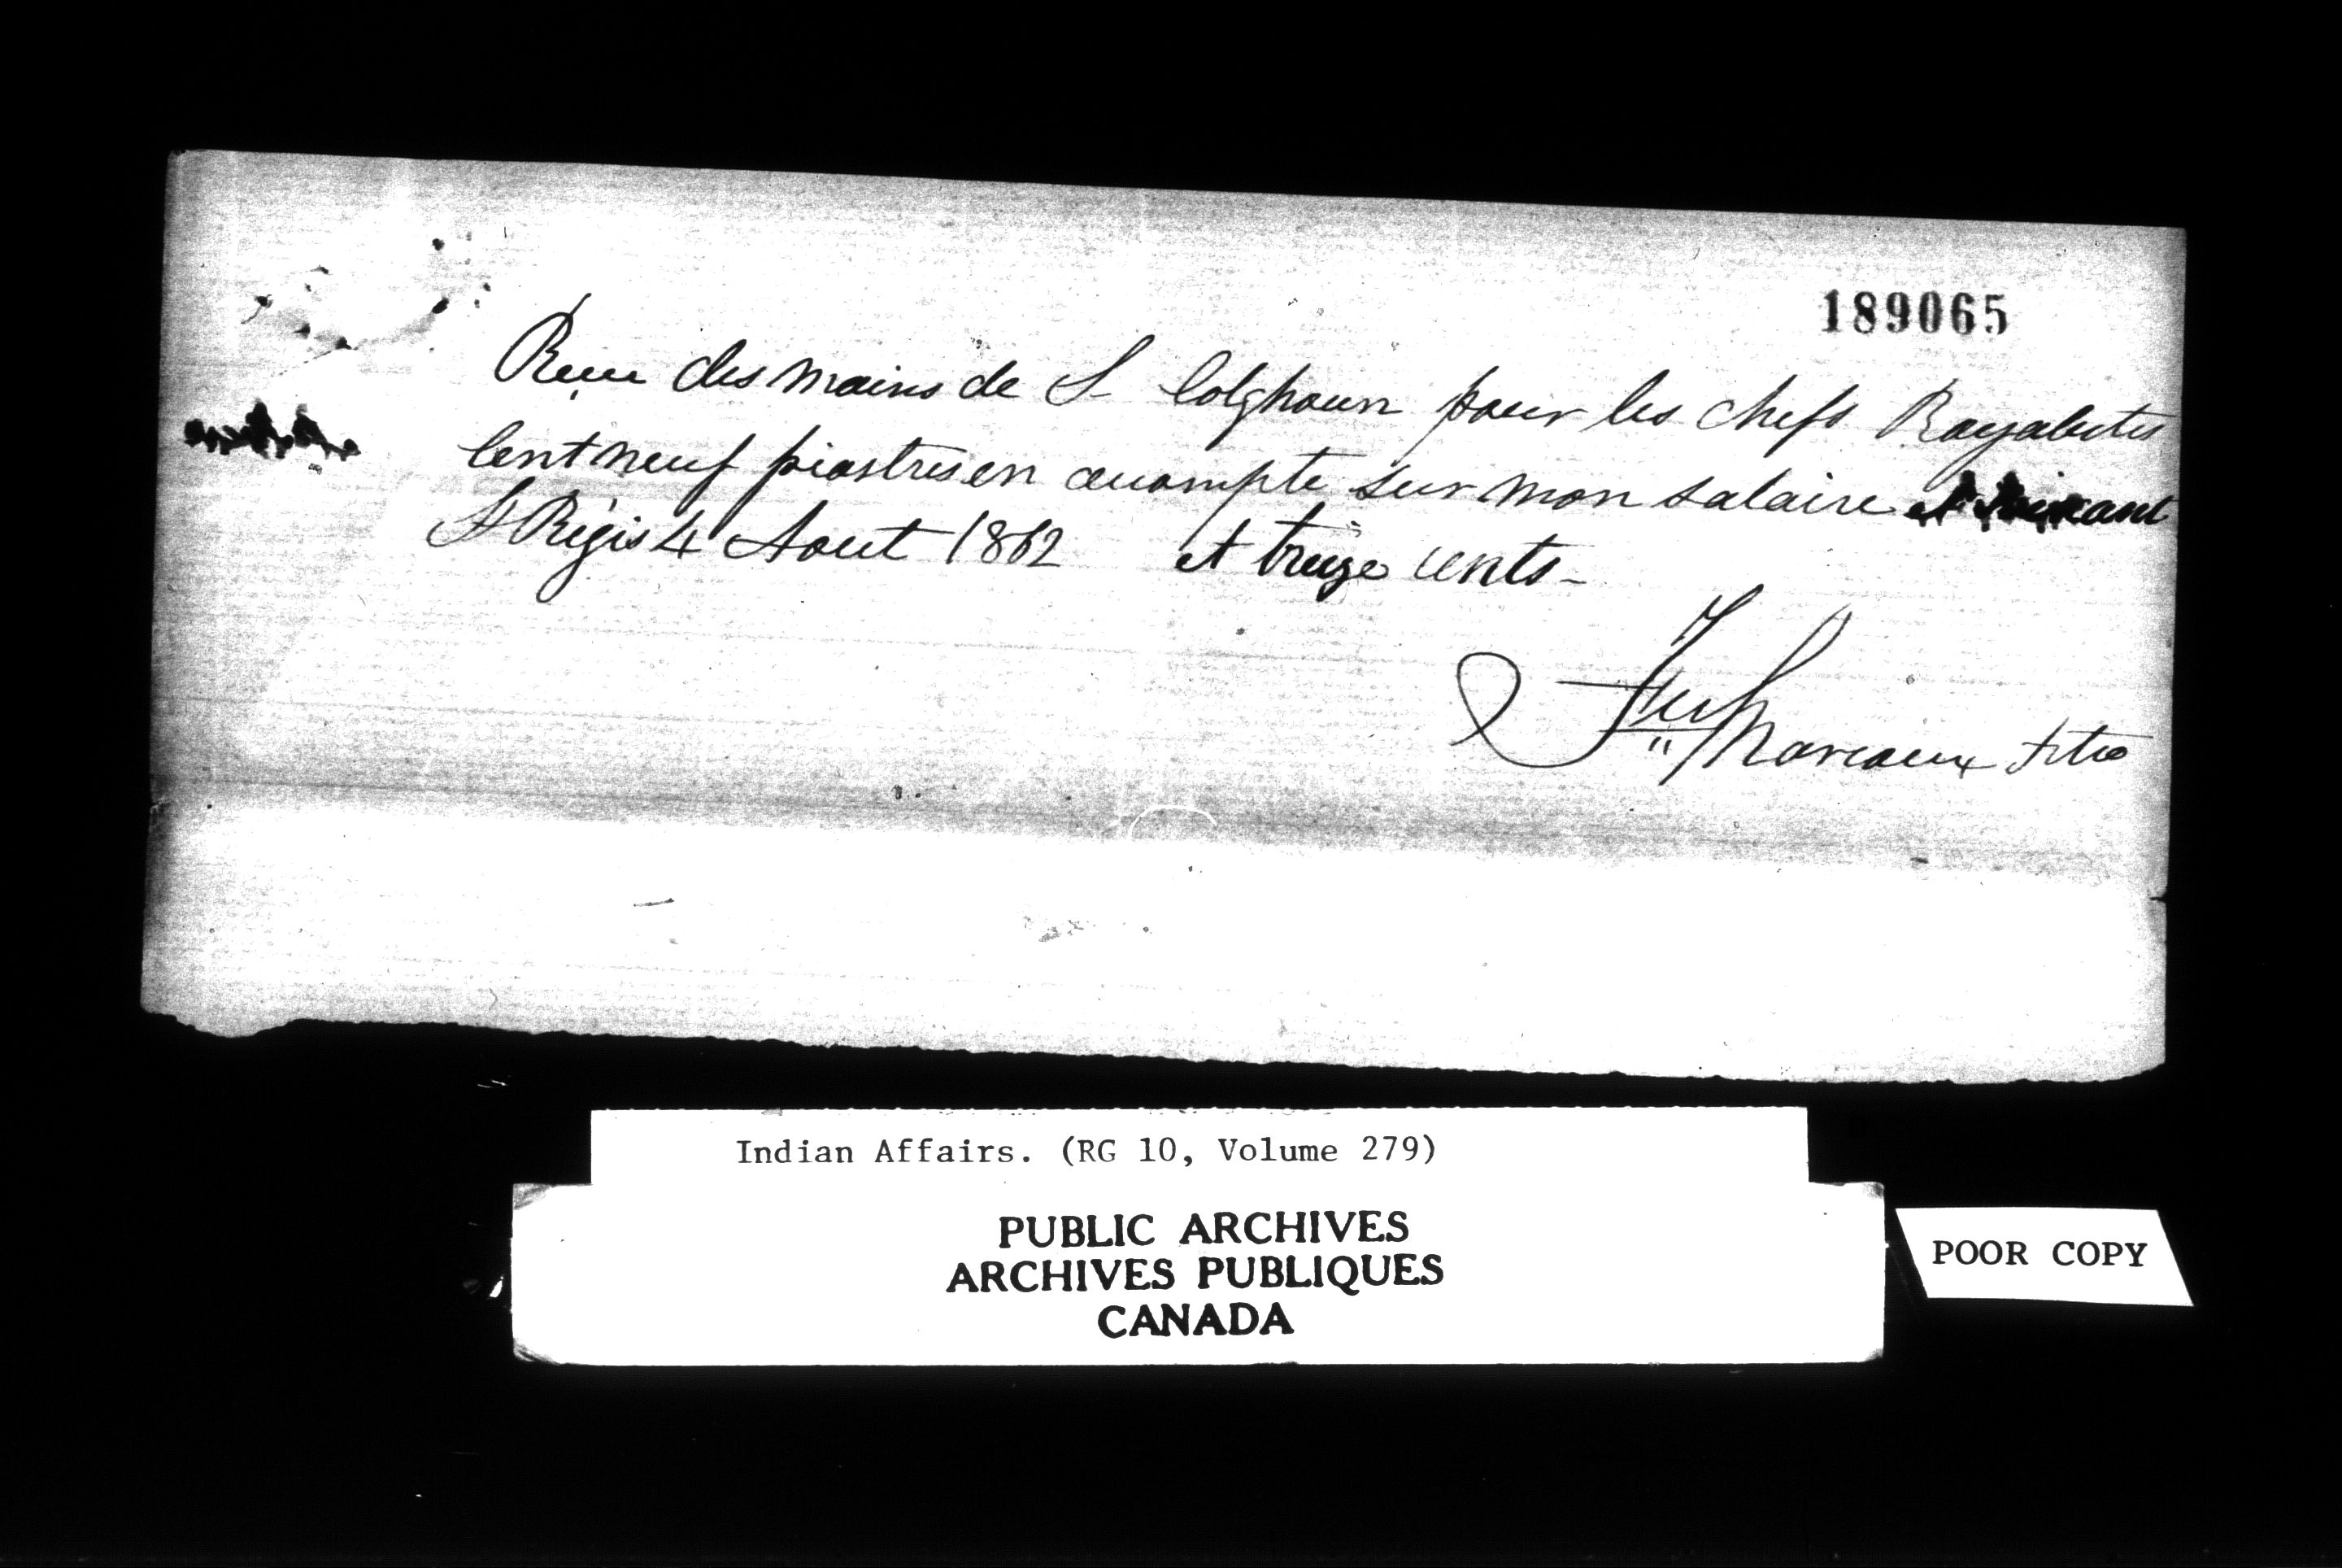 189065
Reçu des mains de S Colghoun pour les chefs
Cent neuf piastres en acompte sur mon salaire
St Régis 4 Aout 1862 et treize cents -
Frs Marcoux Ptre
Indian Affairs. (RG 10, Volume 279)
PUBLIC ARCHIVES
ARCHIVES PUBLIQUES
CANADA
POOR COPY